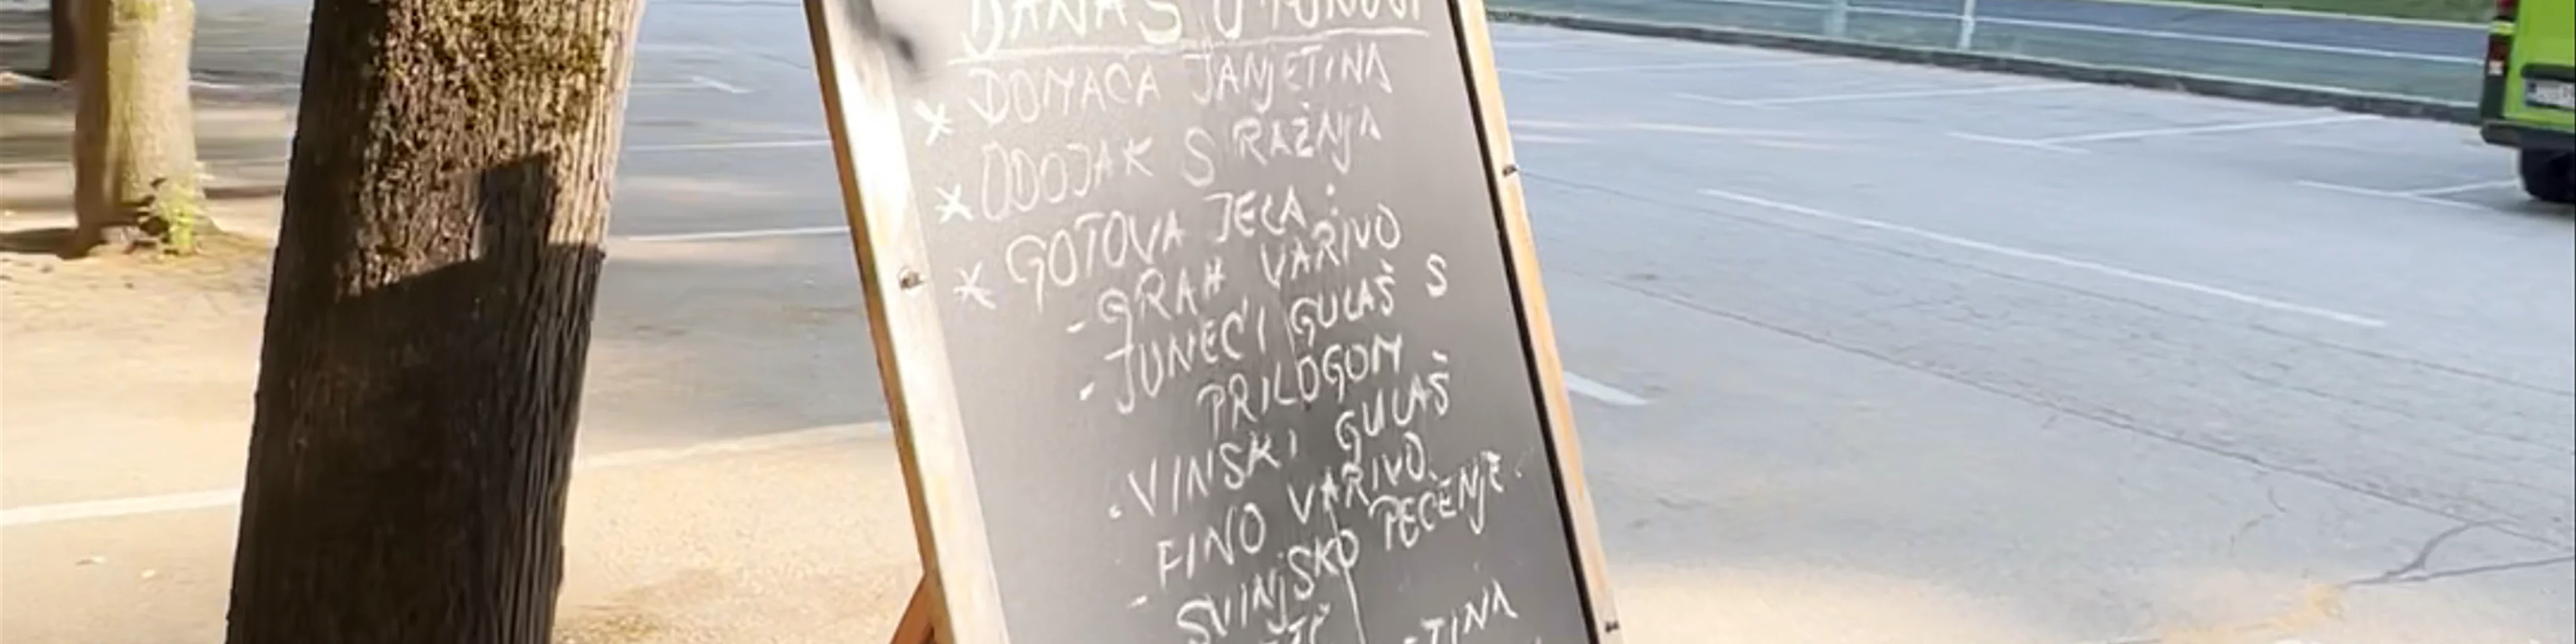 DANAS U PONUDI
* DOMAĆA JANJETINA
* ODOJAK S RAŽNJA
* GOTOVA JELA:
- GRAH VARIVO
- JUNEĆI GULAŠ S
PRILOGOM
. VINSKI GULAŠ
FINO VARIVO.
- SVINJSKO PEČENJE.